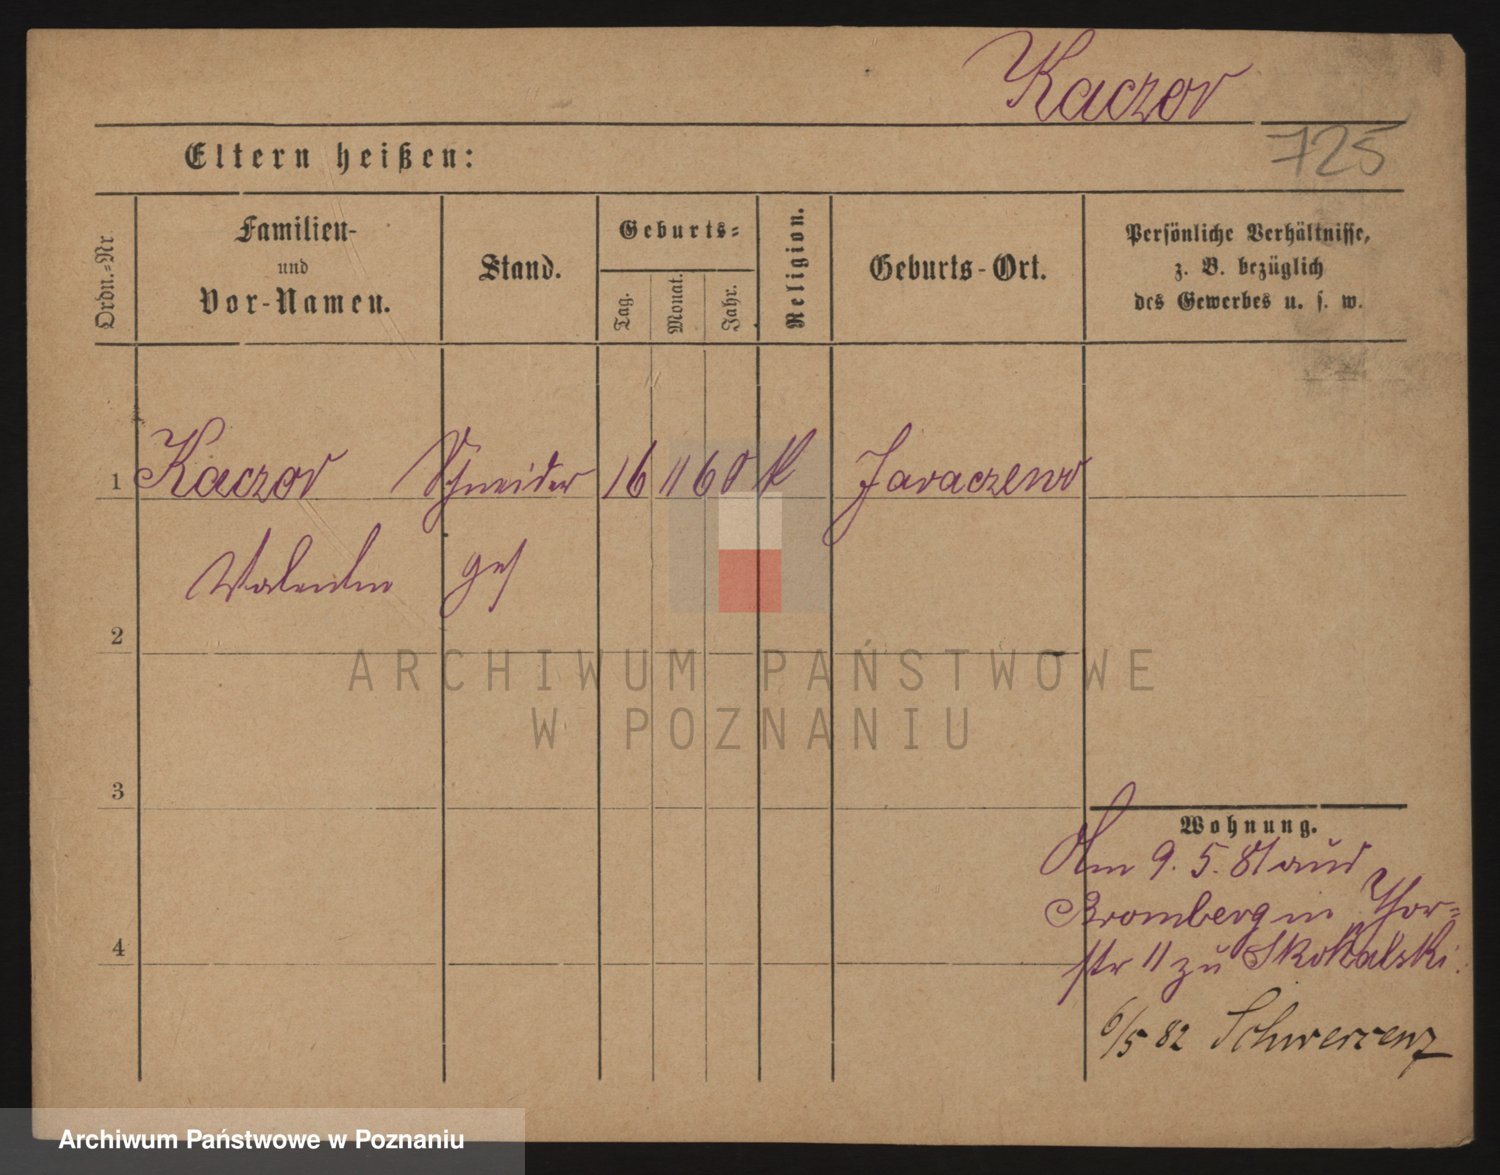 Kaczor
725
Eltern heißen:
Ordn.-Nr
Familien-
und
Vor-Namen.
Stand.
Geburts-
Tag.
Monat.
Jahr.
Religion.
Geburts-Ort.
Persönliche Verhältnisse,
z. B. bezüglich
des Gewerbes u. s. w.
1 Kaczor Schneider 16 11 60 K Jaraczewo
Valentin ges
2
3
4
Wohnung.
Am 9. 5. 81 aus
Bromberg in Thor-
str 11 zu Skokalski.
6/5 82 Schwersenz
ARCHIWUM PAŃSTWOWE
W POZNANIU
Archiwum Państwowe w Poznaniu